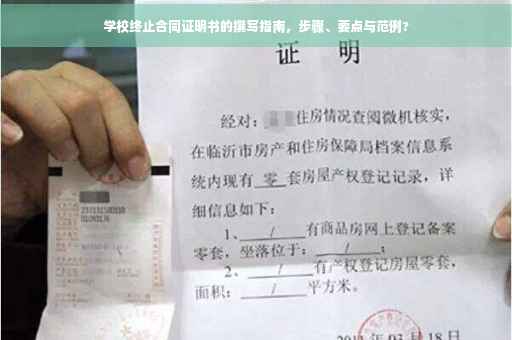 学校终止合同证明书的撰写指南，步骤、要点与范例？
证 明
经对：住房情况查阅微机核实，
在临沂市房产和住房保障局档案信息系
统内现有 零 套房屋产权登记记录，详
细信息如下：
1、 / 有商品房网上登记备案
零套，坐落位于： / ；
2、 / 有产权登记房屋零套，
面积： / 平方米。
月 18 日